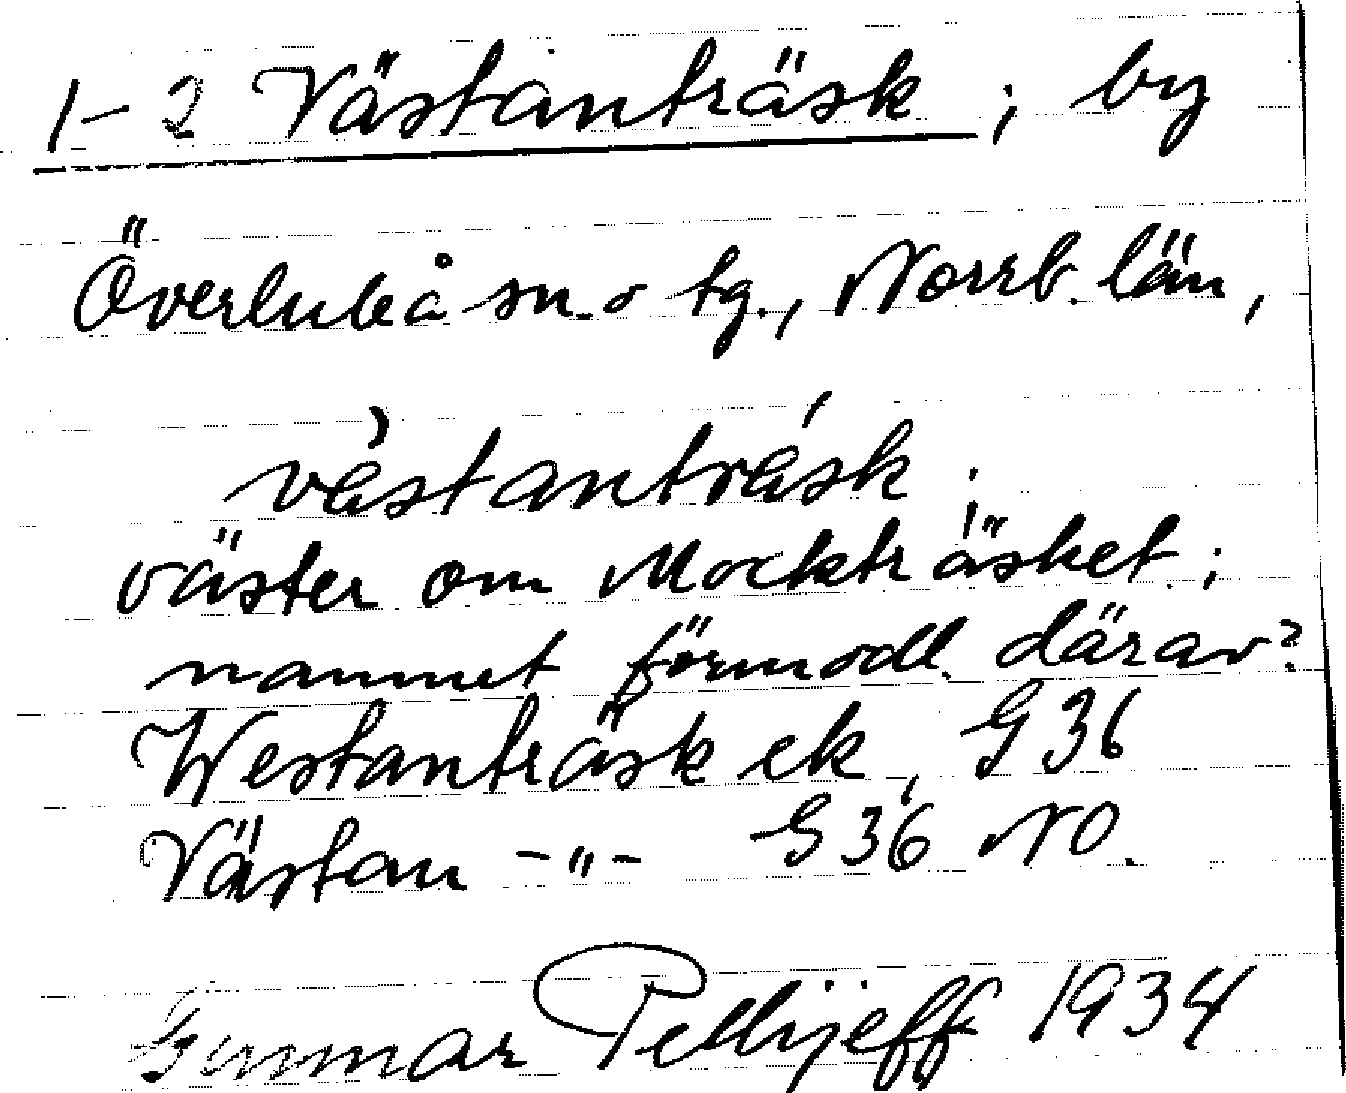 1-2 Västanträsk ; by
Överluleå sn. o tg., Norrb. län,
vàstantrásk.
väster om Mockträsket ;
namnet förmodl. därav?
Westanträsk ek, G36
Västan -"- G36 NO.
Gunnar Pellijeff 1934